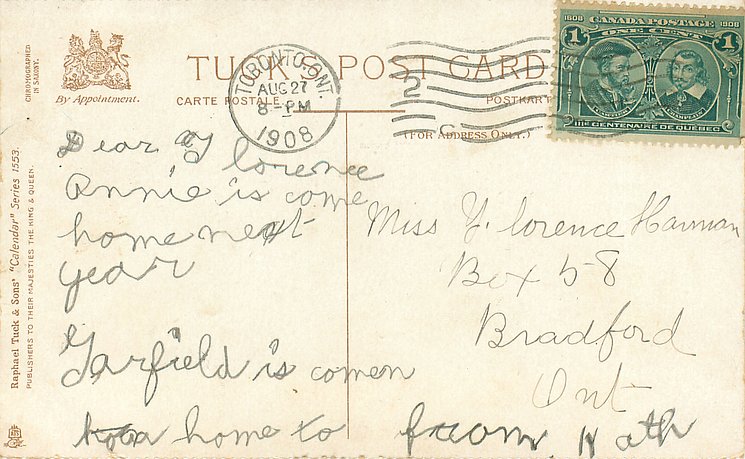 CHROMOGRAPHED
IN SAXONY.
By Appointment.
TUCK'S POST CARD
CARTE POSTALE
POSTKAR
(FOR ADDRESS ONLY.)
TORONTO. ONT.
AUG 27
8 - PM
1908
2
1608 CANADA POSTAGE 1908
1 ONE CENT 1
CARTIER CHAMPLAIN
IIIe CENTENAIRE DE QUÉBEC
Raphael Tuck & Sons' "Calendar" Series 1553.
PUBLISHERS TO THEIR MAJESTIES THE KING & QUEEN.
Dear Florence
Annie is come
home next
year
Garfield is comen
home to from
Miss Florence Harman
Box 58
Bradford
Ont